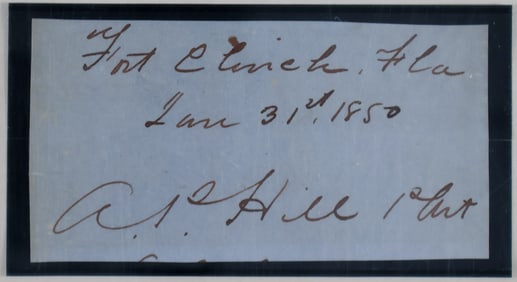 Fort Clinch, Fla
Jan 31st. 1850
A.P. Hill 1st Art